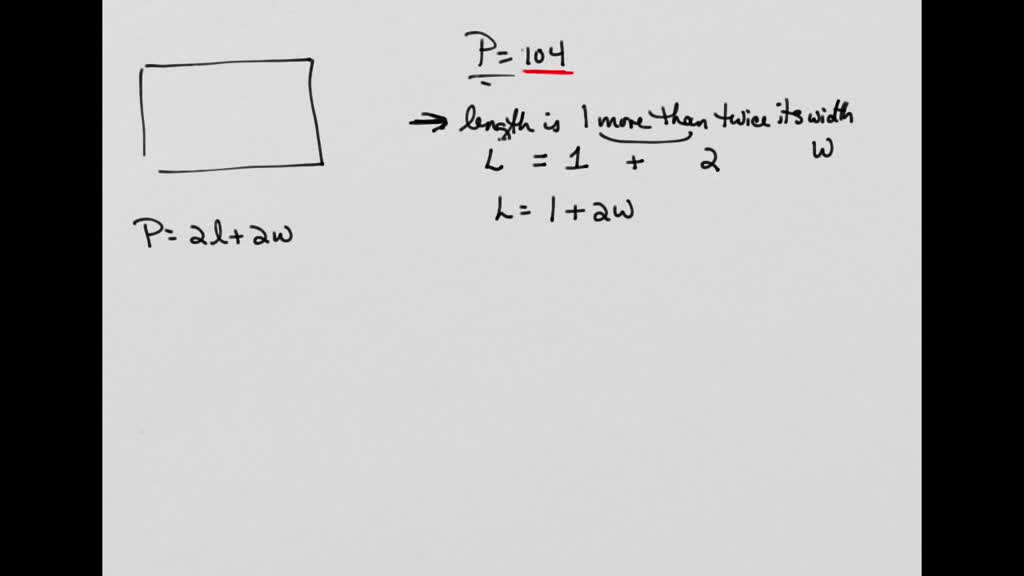 P= 104
→ length is 1 more than twice its width
L = 1 + 2 W
L= 1+2w
P= 2l+2w